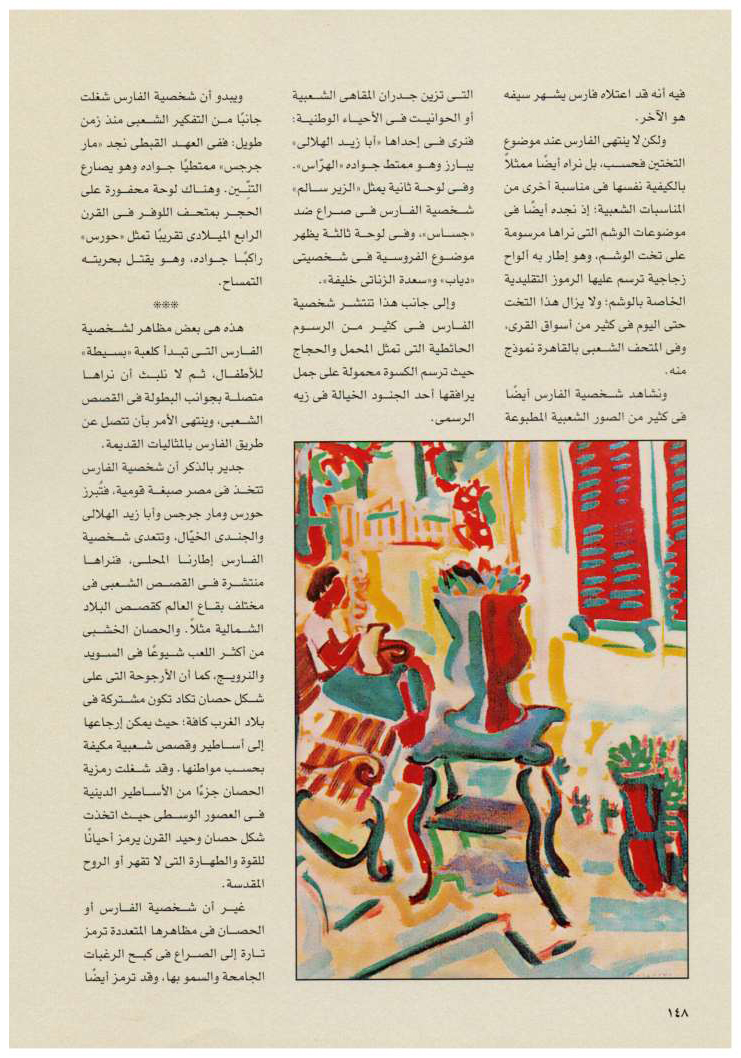 فيه أنه قد اعتلاه فارس يشهر سيفه
هو الآخر.
ولكن لا ينتهى الفارس عند موضوع
التختين فحسب، بل نراه أيضًا ممثلاً
بالكيفية نفسها فى مناسبة أخرى من
المناسبات الشعبية؛ إذ نجده أيضًا فى
موضوعات الوشم التى نراها مرسومة
على تخت الوشم، وهو إطار به ألواح
زجاجية ترسم عليها الرموز التقليدية
الخاصة بالوشم؛ ولا يزال هذا التخت
حتى اليوم فى كثير من أسواق القرى،
وفى المتحف الشعبى بالقاهرة نموذج
منه.
ونشاهد شخصية الفارس أيضًا
فى كثير من الصور الشعبية المطبوعة
التى تزين جدران المقاهى الشعبية
أو الحوانيت فى الأحياء الوطنية؛
فنرى فى إحداها «أبا زيد الهلالى»
يبارز وهو ممتط جواده «الهرّاس».
وفى لوحة ثانية يمثل «الزير سالم»
شخصية الفارس فى صراع ضد
«جساس»، وفى لوحة ثالثة يظهر
موضوع الفروسية فى شخصيتى
«دياب» و«سعدة الزناتى خليفة».
وإلى جانب هذا تنتشر شخصية
الفارس فى كثير من الرسوم
الحائطية التى تمثل المحمل والحجاج
حيث ترسم الكسوة محمولة على جمل
يرافقها أحد الجنود الخيالة فى زيه
الرسمى.
ويبدو أن شخصية الفارس شغلت
جانبًا من التفكير الشعبى منذ زمن
طويل: ففى العهد القبطى نجد «مار
جرجس» ممتطيًا جواده وهو يصارع
التنّين. وهناك لوحة محفورة على
الحجر بمتحف اللوفر فى القرن
الرابع الميلادى تقريبًا تمثل «حورس»
راكبًا جواده، وهو يقتل بحربته
التمساح.
***
هذه هى بعض مظاهر لشخصية
الفارس التى تبدأ كلعبة «بسيطة»
للأطفال، ثم لا نلبث أن نراها
متصلة بجوانب البطولة فى القصص
الشعبى، وينتهى الأمر بأن تتصل عن
طريق الفارس بالمثاليات القديمة.
جدير بالذكر أن شخصية الفارس
تتخذ فى مصر صبغة قومية، فتُبرز
حورس ومار جرجس وأبا زيد الهلالى
والجندى الخيّال، وتتعدى شخصية
الفارس إطارنا المحلى، فنراها
منتشرة فى القصص الشعبى فى
مختلف بقاع العالم كقصص البلاد
الشمالية مثلاً. والحصان الخشبى
من أكثر اللعب شيوعًا فى السويد
والنرويج، كما أن الأرجوحة التى على
شكل حصان تكاد تكون مشتركة فى
بلاد الغرب كافة؛ حيث يمكن إرجاعها
إلى أساطير وقصص شعبية مكيفة
بحسب مواطنها. وقد شغلت رمزية
الحصان جزءًا من الأساطير الدينية
فى العصور الوسطى حيث اتخذت
شكل حصان وحيد القرن يرمز أحيانًا
للقوة والطهارة التى لا تقهر أو الروح
المقدسة.
غير أن شخصية الفارس أو
الحصان فى مظاهرها المتعددة ترمز
تارة إلى الصراع فى كبح الرغبات
الجامحة والسمو بها، وقد ترمز أيضًا
١٤٨